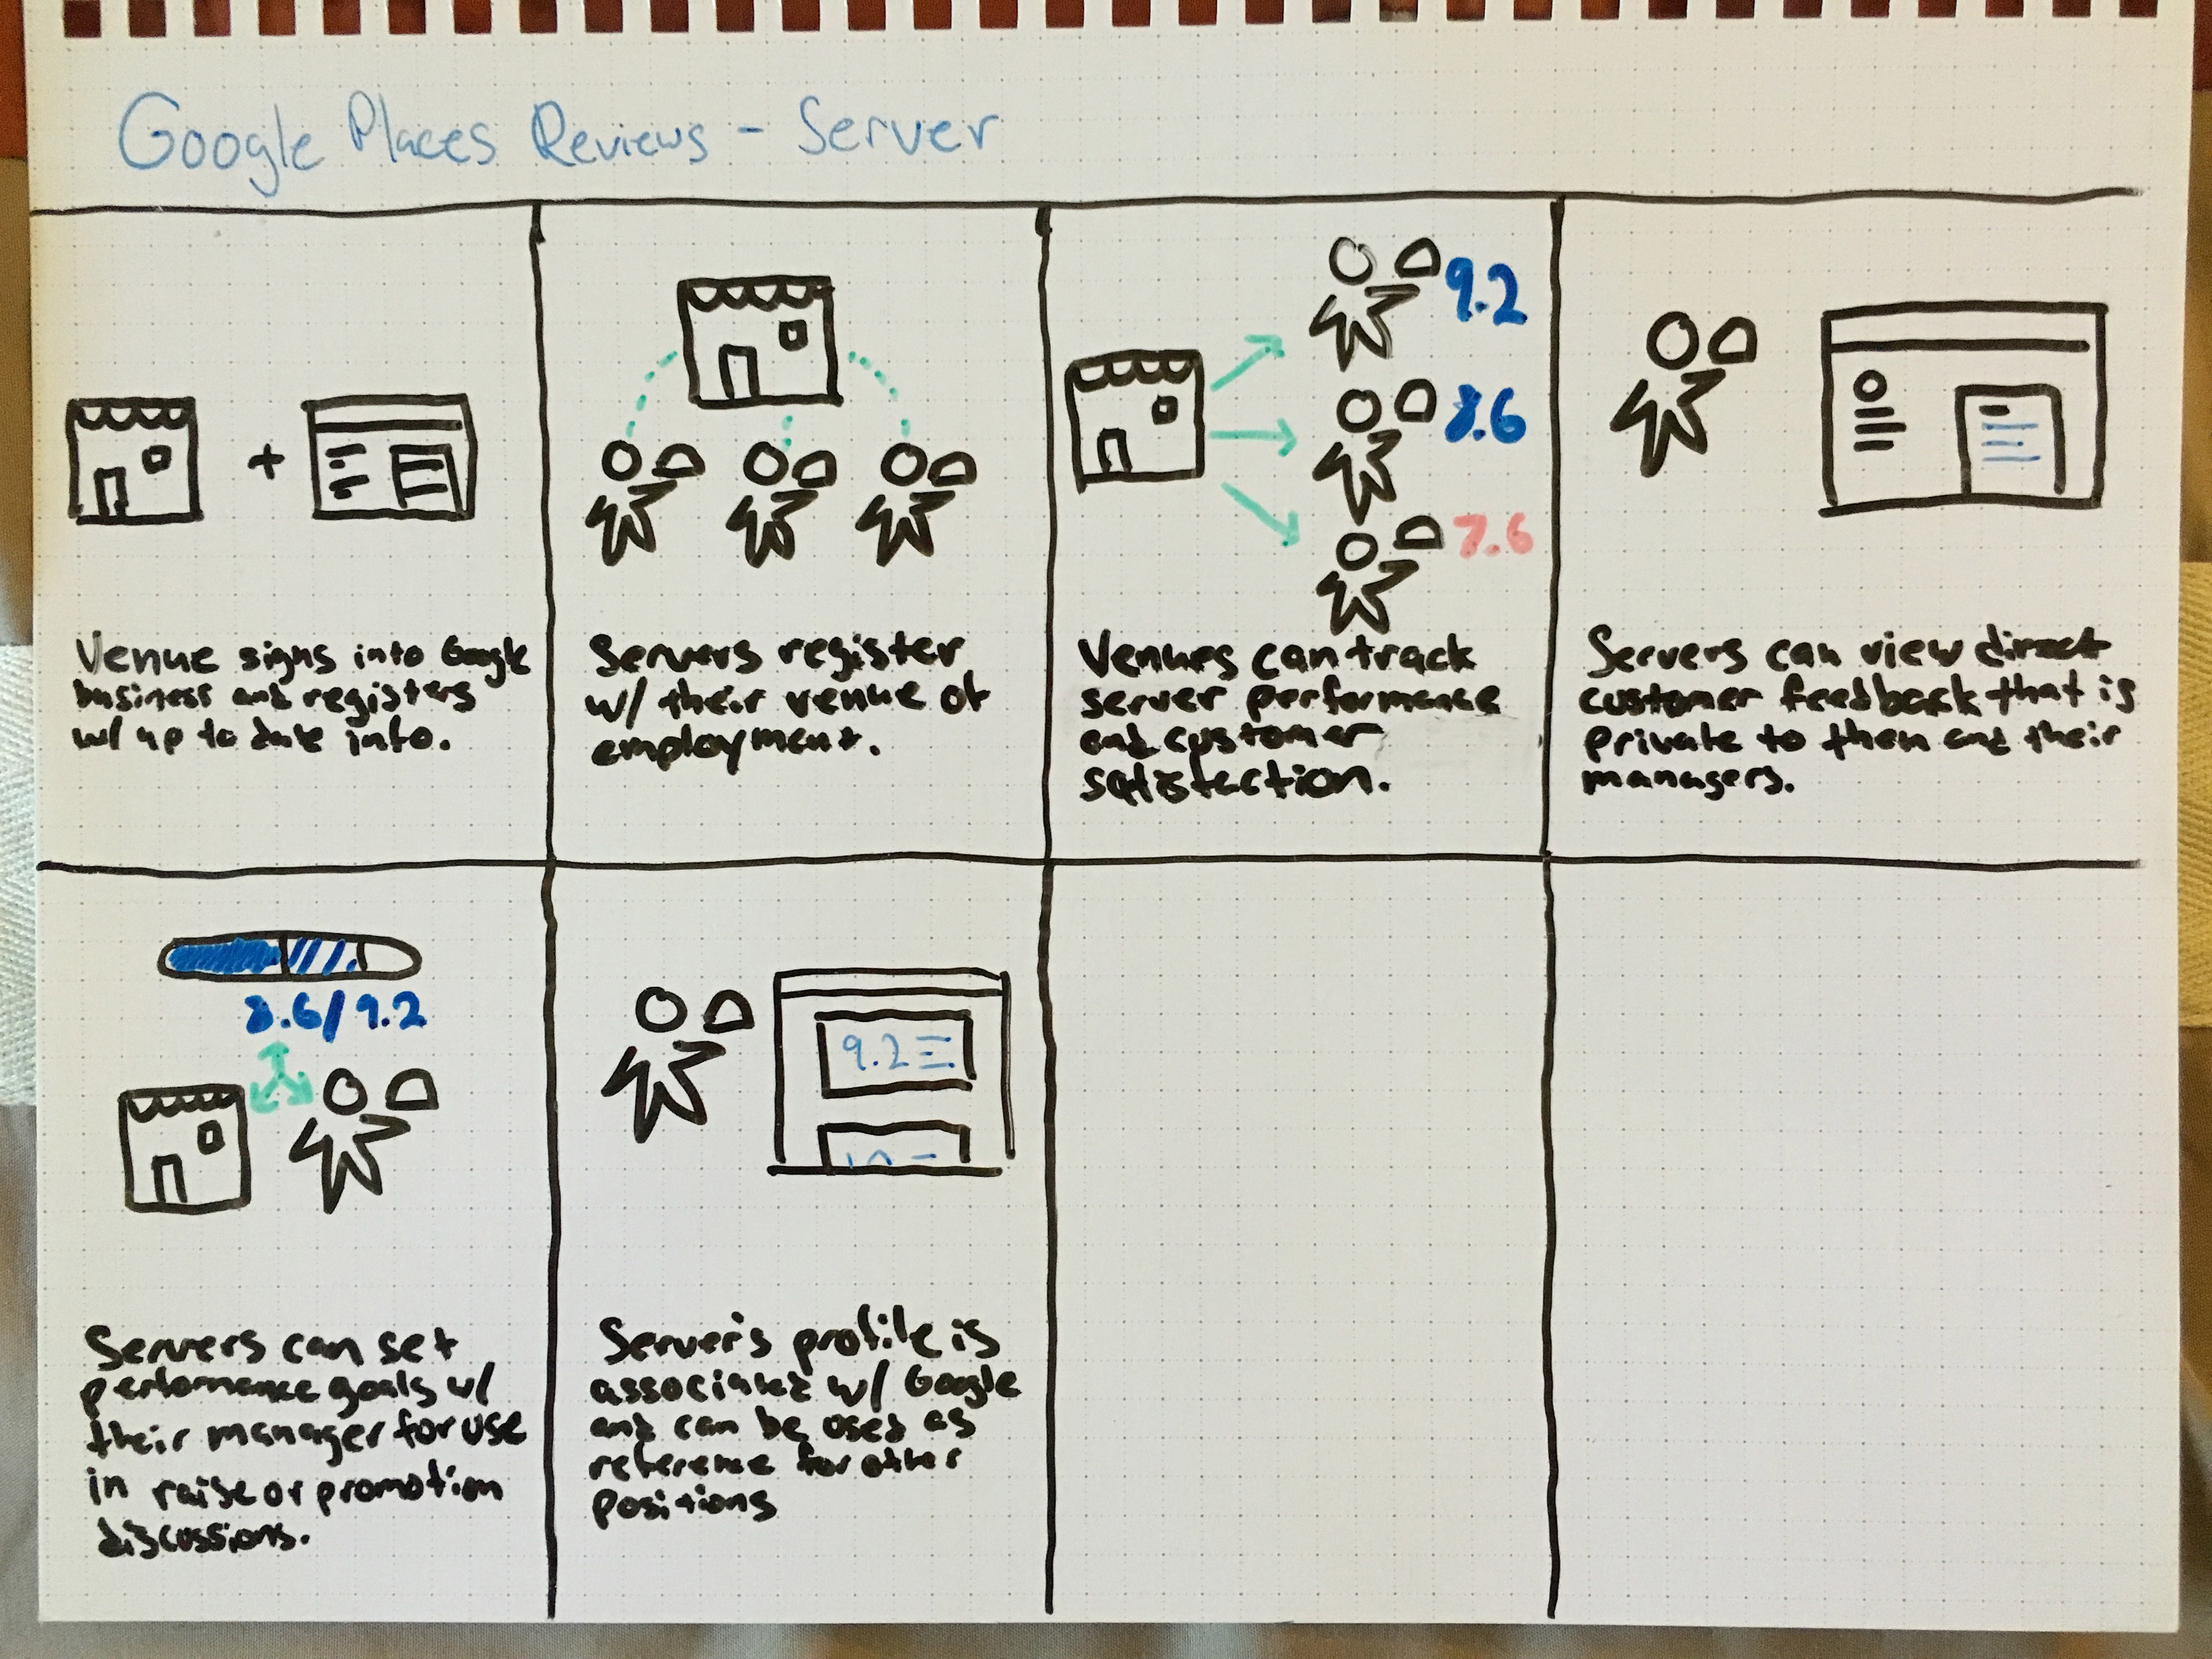 Google Places Reviews - Server
Venue signs into Google
business and registers
w/ up to date info.
Servers register
w/ their venue of
employment.
9.2
8.6
7.6
Venues can track
server performance
and customer
satisfaction.
Servers can view direct
customer feedback that is
private to them and their
managers.
8.6/9.2
Servers can set
performance goals w/
their manager for use
in raise or promotion
discussions.
9.2
Server's profile is
associated w/ Google
and can be used as
reference for other
positions